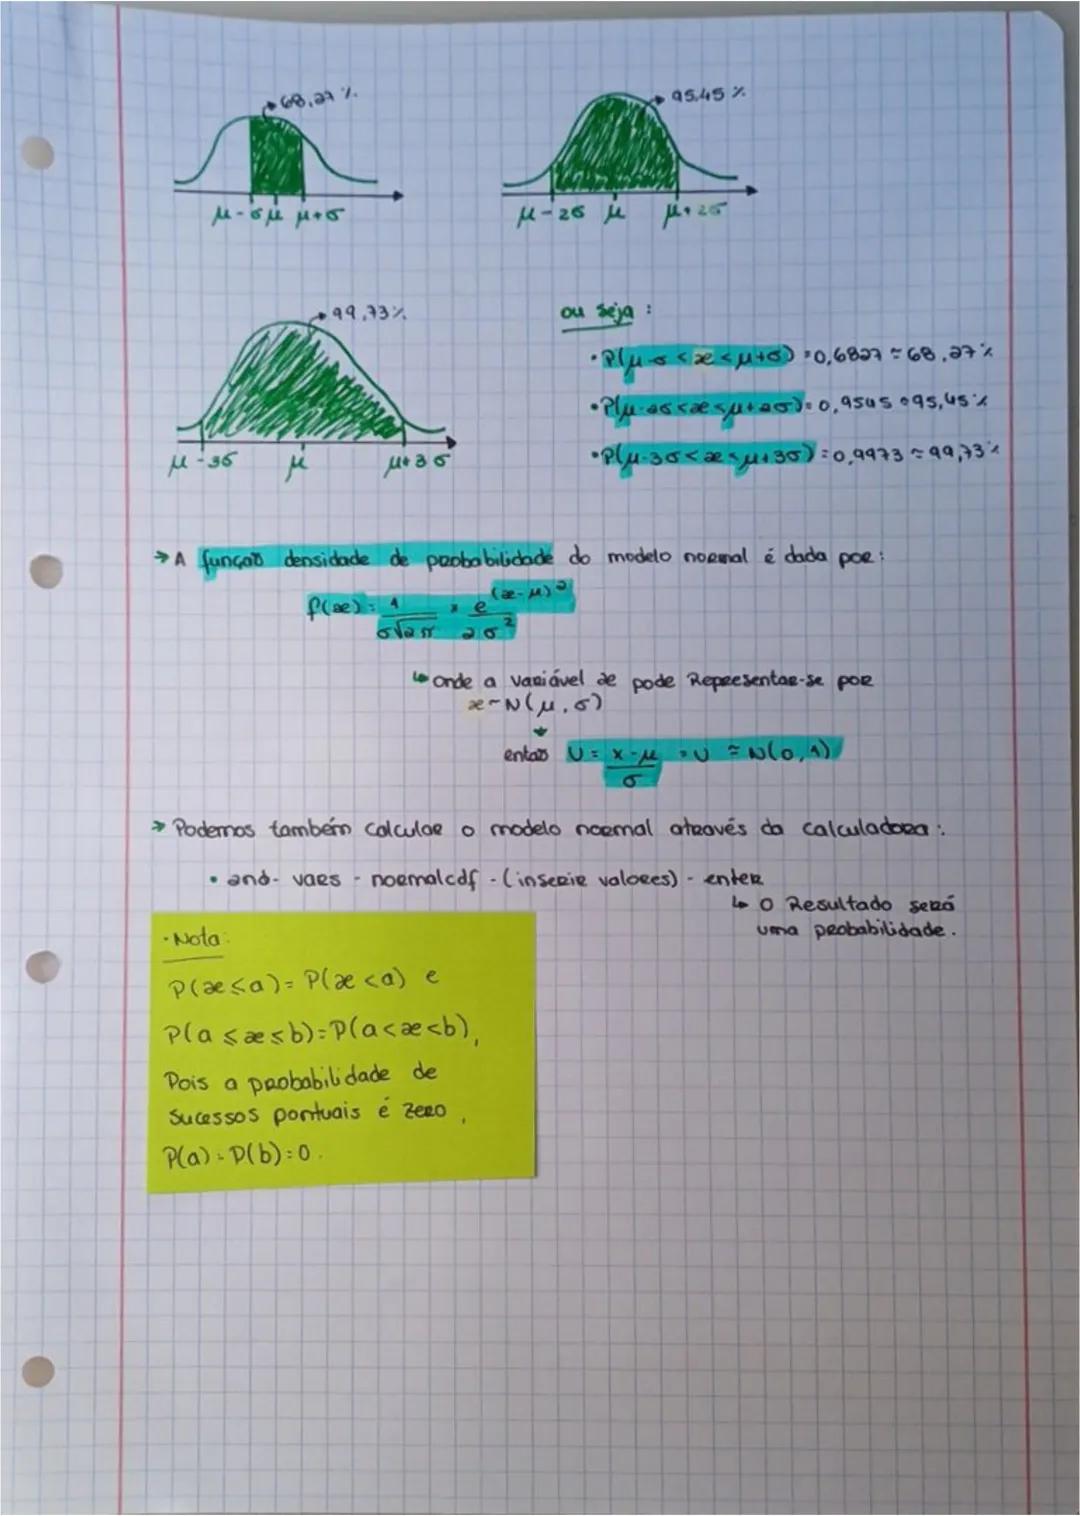 68,27 %.
95.45 %
μ-σ μ μ+σ
μ-2σ μ μ+2σ
99,73%
μ-3σ μ μ+3σ
ou seja :
•P(μ-σ < x < μ+σ) = 0,6827 ≈ 68,27%
•P(μ-2σ < x < μ+2σ) = 0,9545 ≈ 95,45%
•P(μ-3σ < x < μ+3σ) = 0,9973 ≈ 99,73%
→ A função densidade de probabilidade do modelo normal é dada por:
f(x) = 1/σ√2π × e (x-μ)²/2σ²
↳ onde a variável x pode Representar-se por
x ~ N(μ, σ)
então U = x-μ/σ = U ≈ N(0,1)
→ Podemos também calcular o modelo normal através da calculadora:
• 2nd - vars - normalcdf - (inserir valores) - enter
↳ O Resultado será
uma probabilidade.
• Nota:
P(x ≤ a) = P(x < a) e
P(a ≤ x ≤ b) = P(a < x < b),
Pois a probabilidade de
sucessos pontuais é zero,
P(a) = P(b) = 0.